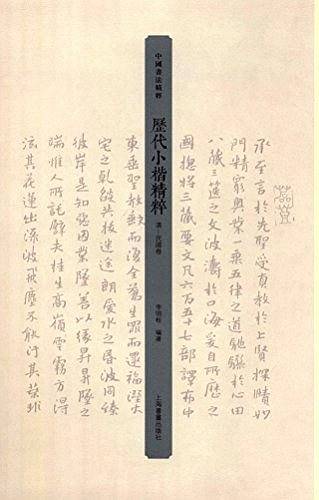 承至言於先聖受真教於上賢探賾妙
門精窮奧業一乘五律之道馳驟於心田
八藏三篋之文波濤於口海爰自所歷之
國總將三藏要文凡六百五十七部譯布中
中國書法精粹
歷代小楷精粹
清·民國卷
李明 編著
上海書畫出版社
東垂聖教缺而復全蒼生罪而還福濕火
宅之乾焰共拔迷途朗愛水之昏波同臻
彼岸是知惡因業墜善以緣昇昇墜之
端惟人所託譬夫桂生高嶺雲霧方得
泫其花蓮出淥波飛塵不能汙其葉非